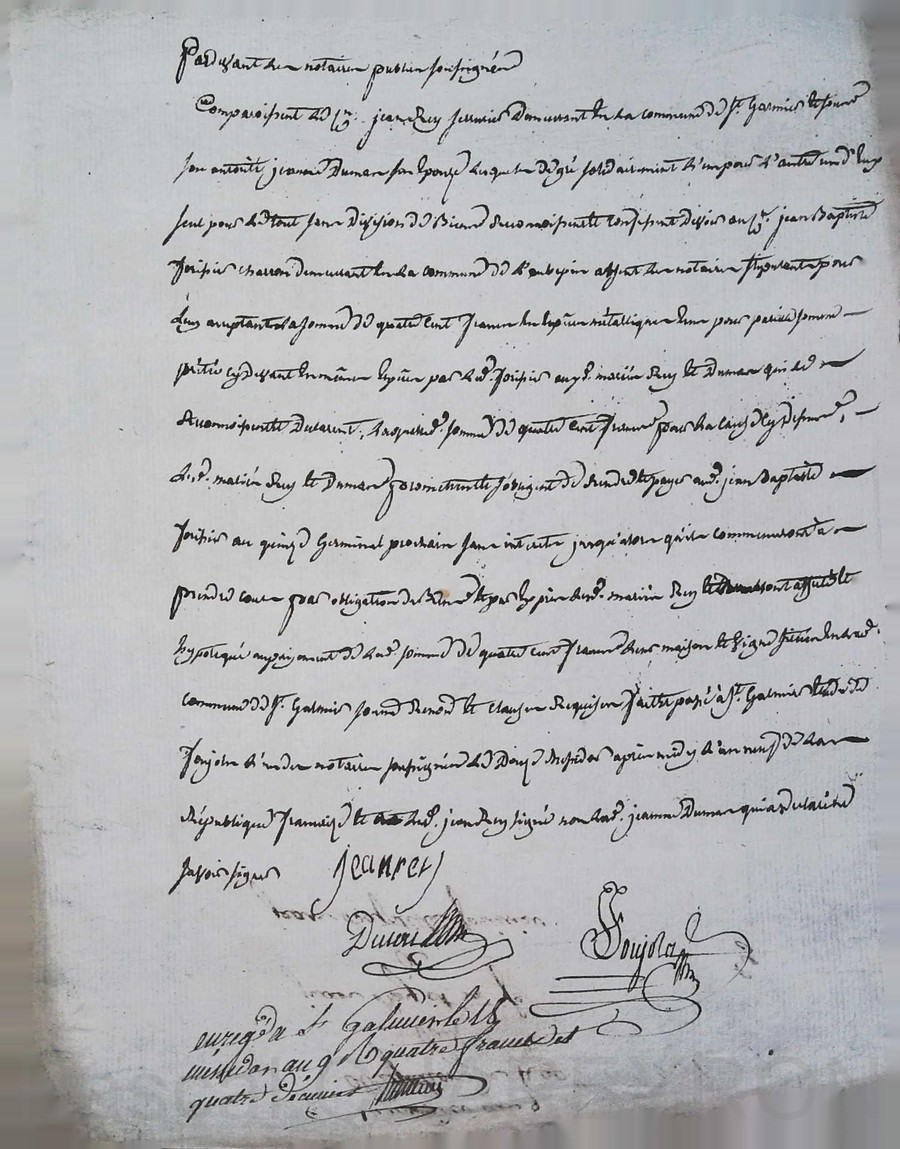 Pardevant les notaires publics soussignés
Comparoissent le Cn. jean Rey serrurier demeurant en la commune de St. Galmier et sous
son autorité jeanne Dumas son épouze lesquels de gré solidairement l'un pour l'autre un d'eux
seul pour le tout sans division de Biens reconnoissent et confessent devoir au Cn. jean Baptiste
charron demeurant en la commune de l'aubepin absent les notaires stipulants pour
lui acceptant la somme de quatre cent francs en espèces métalliques pour pareille somme
prêtée cy devant en même espèce par led. auxd. mariés Rey et Dumas qui le
reconnoissent et declarent, laquelle d. somme de quatre cent francs pour la cause cy dessus,
lesd. mariés Rey et Dumas promettent et s'obligent de rendre et payer aud. jean Baptiste
au quinze Germinal prochain sans interets jusqu'alors qu'ils commenceront à
prendre cours par obligation de Biens et par exprès lesd. mariés Rey et ont affecté et
hypotequé au payement de lad. somme de quatre cent francs leurs maison et vigne situées en lad.
commune de St. Galmier soumis renon. et clauses requises fait et passé à St. Galmier etude de
Joujola l'un des notaires soussignés le Douze Messidor après midy l'an neuf de la
République française et led. jean Rey signé non lad. jeanne Dumas qui a declaré ne
savoir signer jean rey
Joujola
enregé. à St. Galmier le 16
messidor an 9 R quatre francs et
quatre décimes